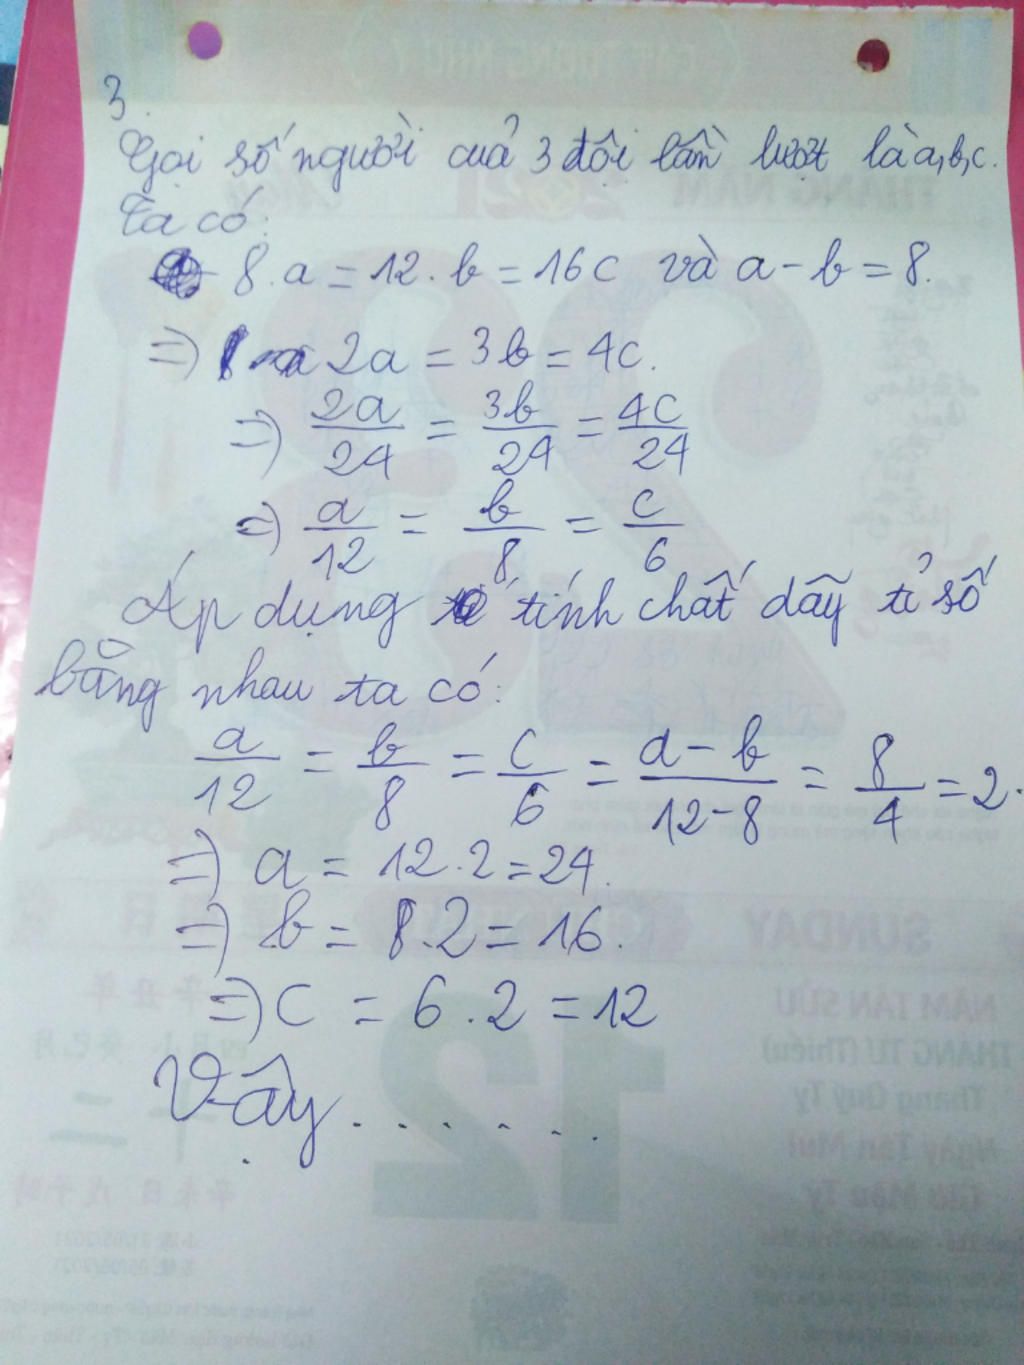 3.
Gọi số người của 3 đội lần lượt là a, b, c.
Ta có:
8.a = 12.b = 16c và a - b = 8.
=) 2a = 3b = 4c.
=) 2a/24 = 3b/24 = 4c/24
=) a/12 = b/8 = c/6
Áp dụng tính chất dãy tỉ số
bằng nhau ta có:
a/12 = b/8 = c/6 = a-b/12-8 = 8/4 = 2.
=) a = 12.2 = 24.
=) b = 8.2 = 16.
=) c = 6.2 = 12
Vậy.......
THÁNG NĂM 2021
23
SUNDAY
NĂM TÂN SỬU
THÁNG TƯ (Thiếu)
Tháng Quý Tỵ
Ngày Tân Mùi
12